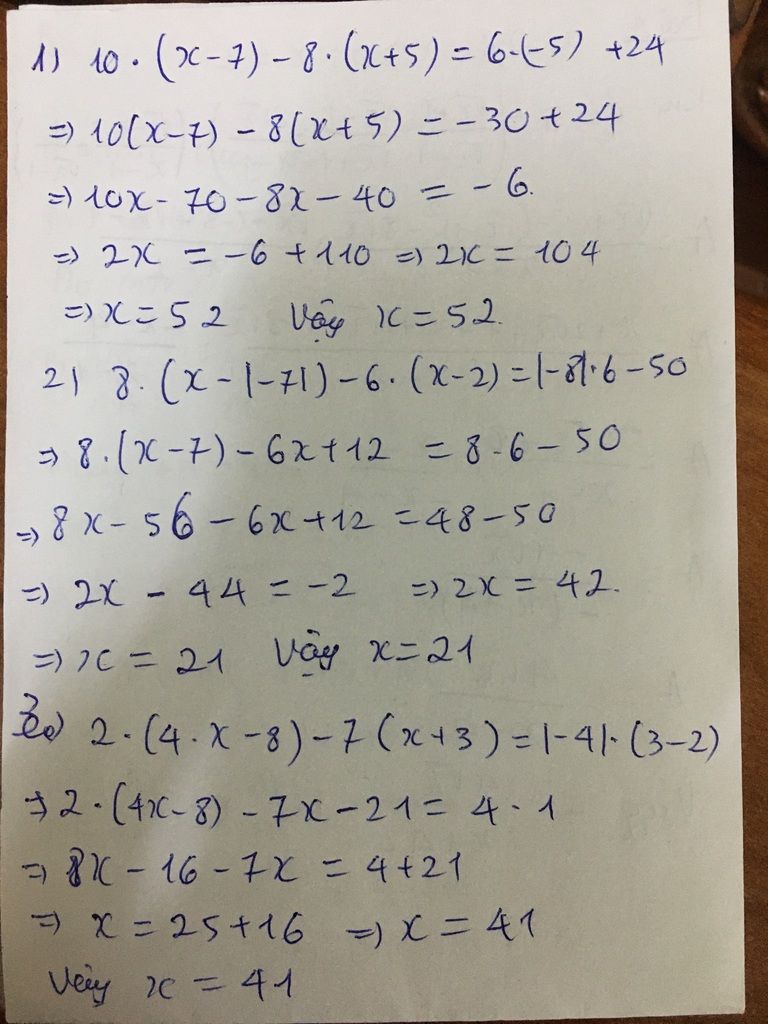 1) 10 · (x - 7) - 8 · (x + 5) = 6 · (-5) + 24
=> 10(x - 7) - 8(x + 5) = -30 + 24
=> 10x - 70 - 8x - 40 = -6.
=> 2x = -6 + 110 => 2x = 104
=> x = 52 Vậy x = 52.
2) 8 · (x - |-7|) - 6 · (x - 2) = |-8| · 6 - 50
=> 8 · (x - 7) - 6x + 12 = 8 · 6 - 50
=> 8x - 56 - 6x + 12 = 48 - 50
=> 2x - 44 = -2 => 2x = 42.
=> x = 21 Vậy x = 21
3) 2 · (4 · x - 8) - 7(x + 3) = |-4| · (3 - 2)
=> 2 · (4x - 8) - 7x - 21 = 4 · 1
=> 8x - 16 - 7x = 4 + 21
=> x = 25 + 16 => x = 41
Vậy x = 41